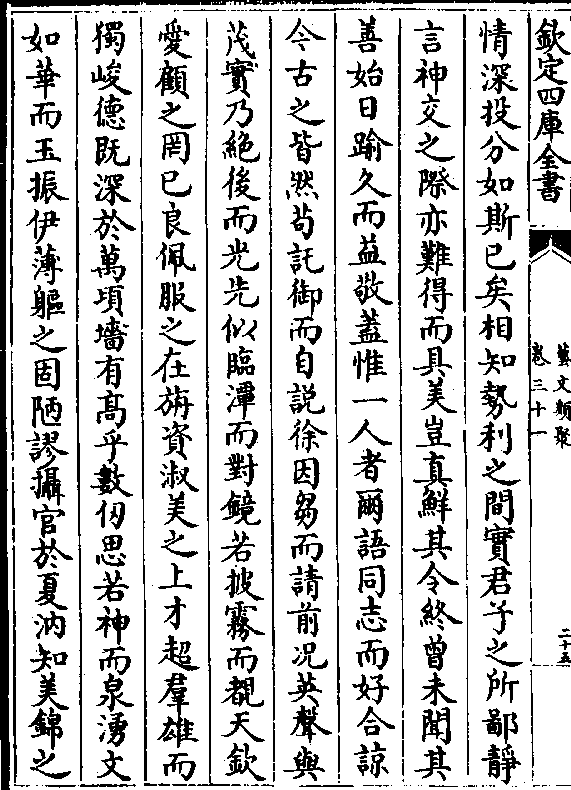 欽定四庫全書
藝文類聚
卷三十一
二十五
情深投分如斯已矣相知勢利之間實君子之所鄙靜
言神交之際亦難得而具美豈真鮮其令終曾未聞其
善始日踰久而益敬蓋惟一人者爾語同志而好合諒
今古之皆然苟託御而自説徐因芻而請前况英聲與
茂實乃絶後而光先似臨潭而對鏡若披霧而覩天欽
愛顧之罔已良佩服之在旃資淑美之上才超羣雄而
獨峻德既深於萬頃墻有髙乎數仞思若神而泉湧文
如華而玉振伊薄軀之固陋謬攝官於夏汭知美錦之